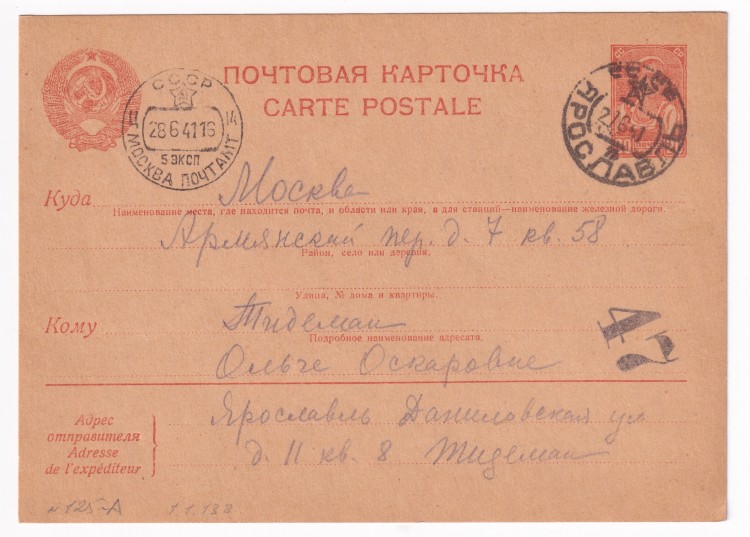 ПОЧТОВАЯ КАРТОЧКА
CARTE POSTALE
СССР
28 6 41 16
5 ЭКСП
МОСКВА ПОЧТАМТ
ЯРОСЛАВЛЬ
Куда Москва
Наименование места, где находится почта, и области или края, а для станций—наименование железной дороги.
Армянский пер. д. 7 кв. 58
Район, село или деревня.
Улица, № дома и квартиры.
Кому Тидеман
Подробное наименование адресата.
Ольге Оскаровне
47
Адрес
отправителя
Adresse
de l'expéditeur
Ярославль Даниловская ул
д. 11 кв. 8 Тидеман
№125-А 1.1.138